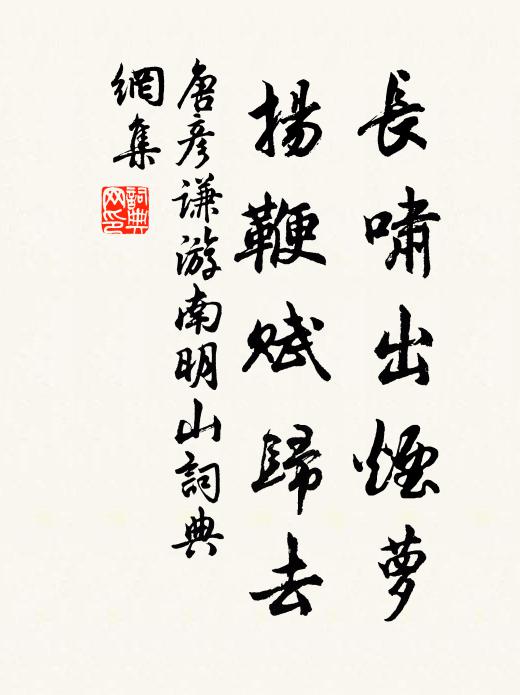 長嘯出煙萝
揚鞭賦歸去
唐彦谦游南明山詞典
網集
詞典
网印